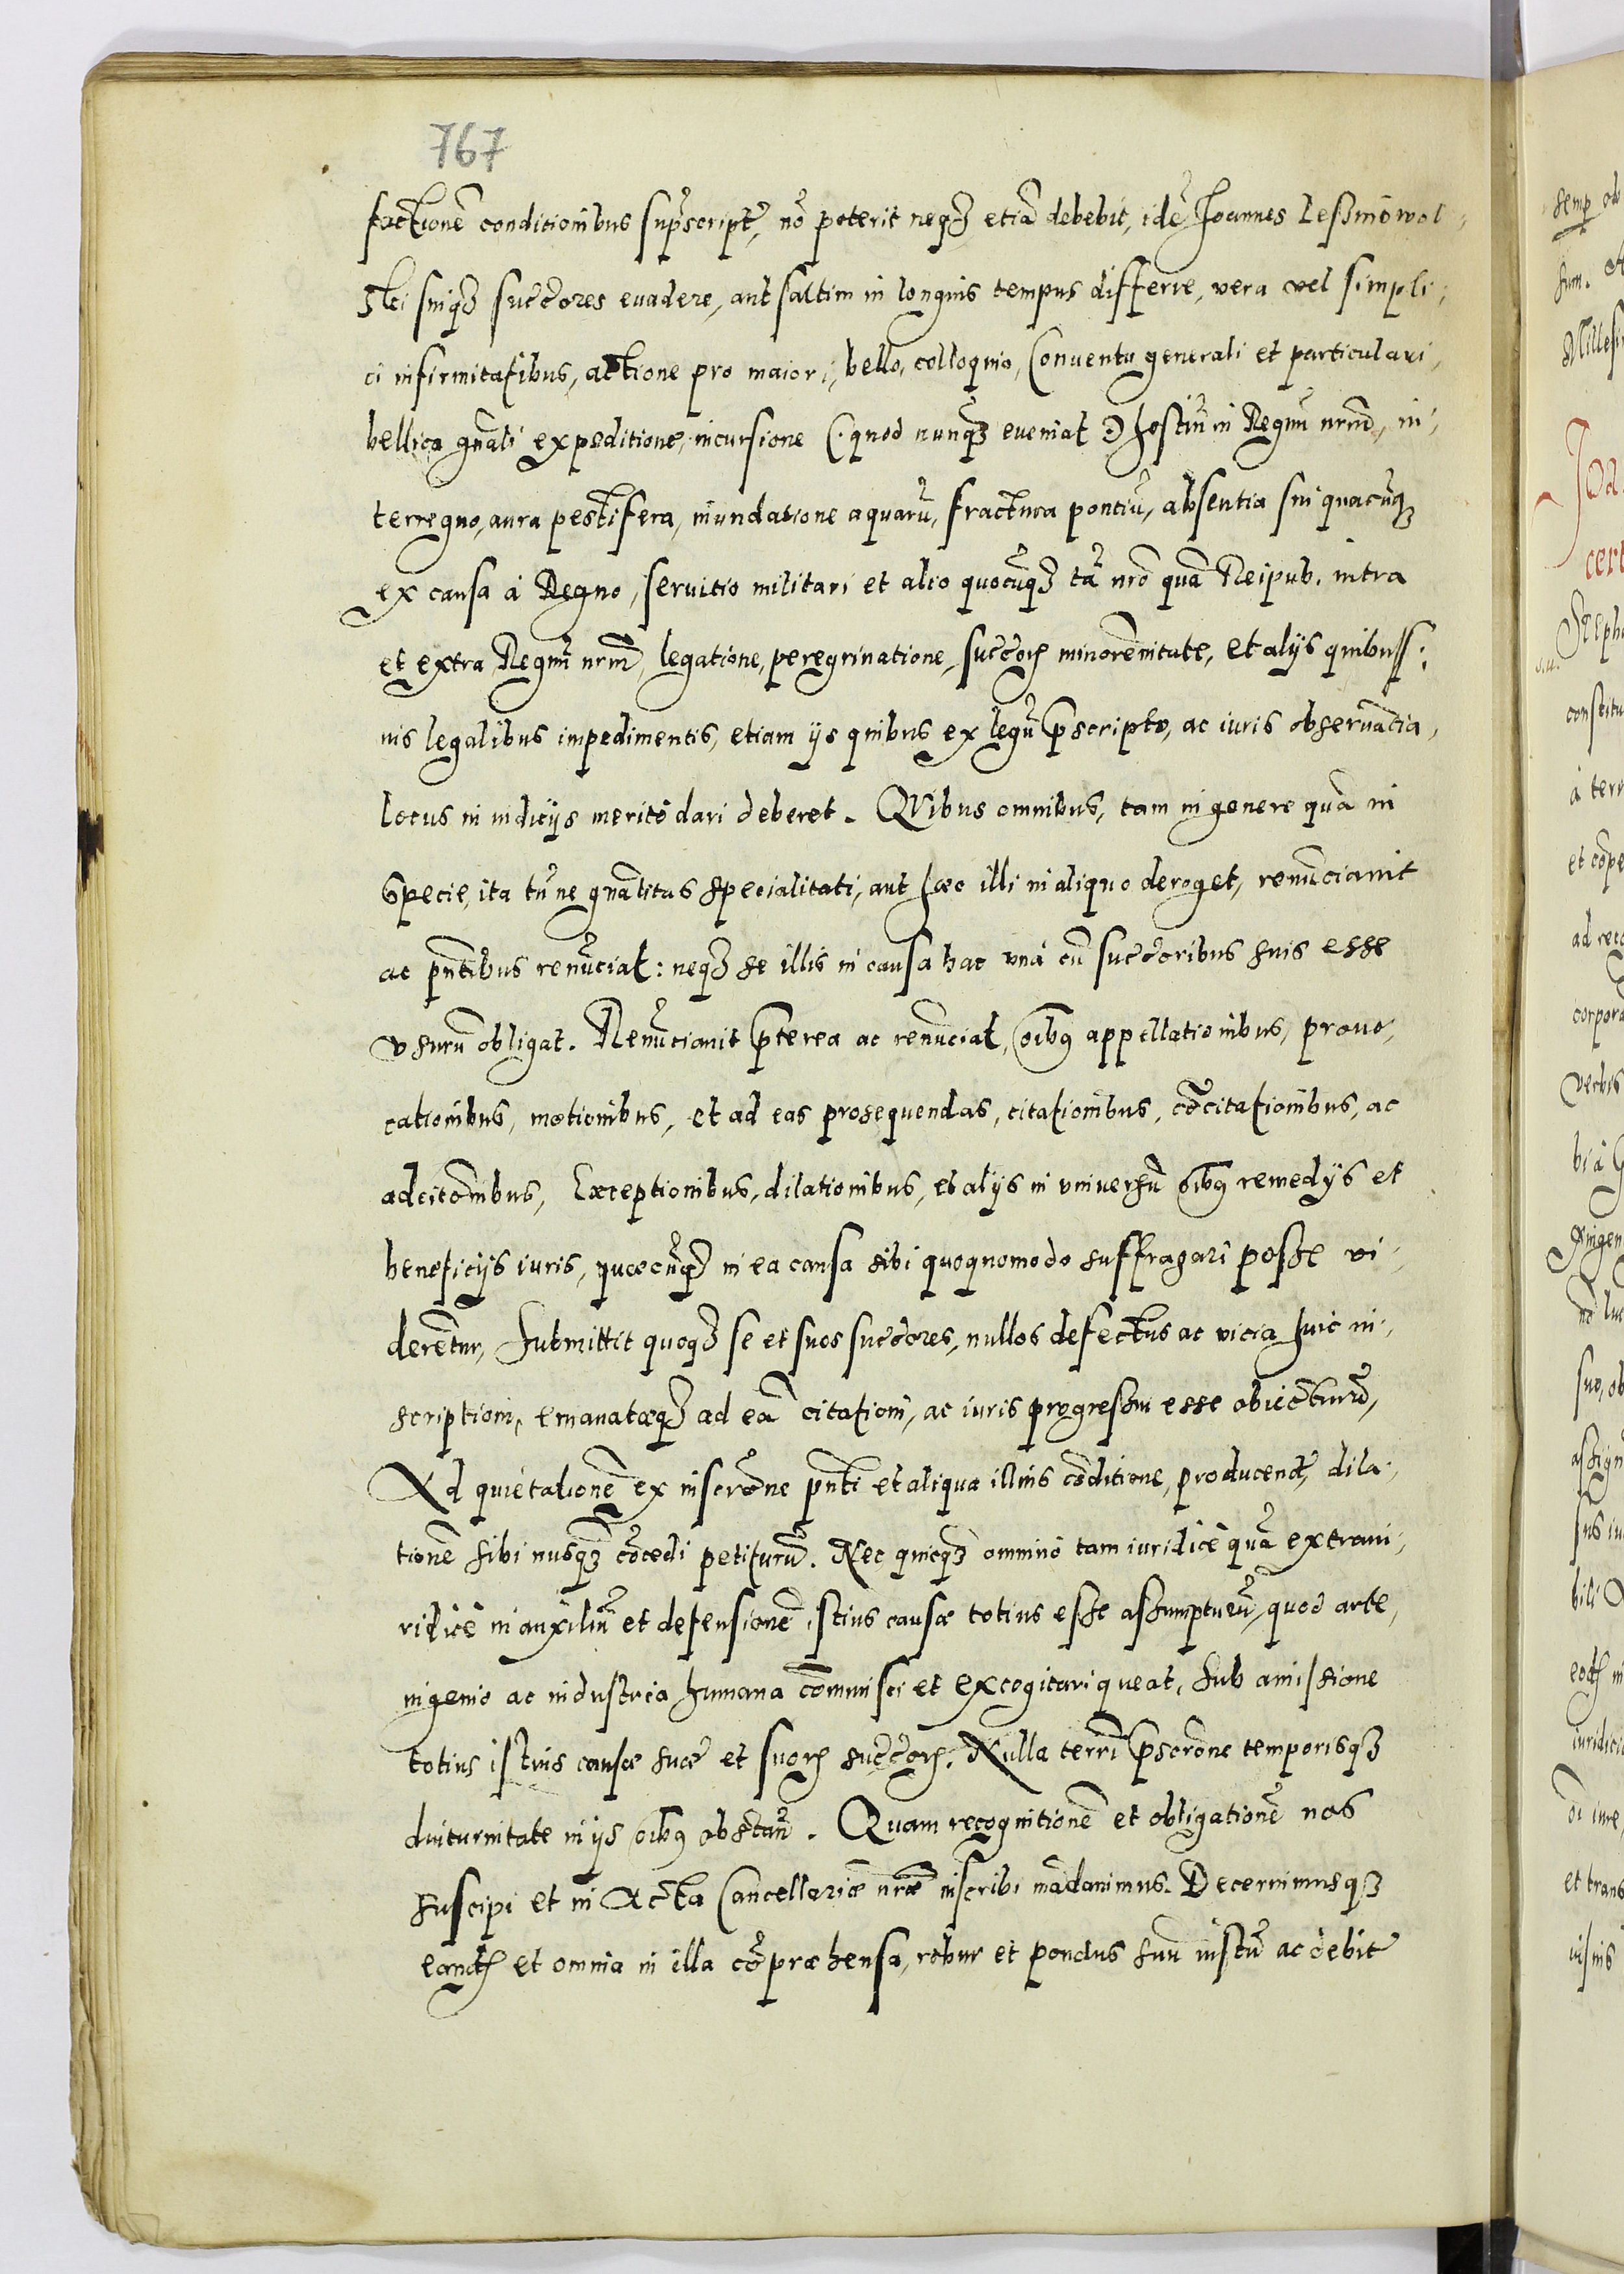 767
factionē conditionibus sup̄script̄, nō poterit neqꝫ etiā debebit, idē Joannes Lesznowol-
ski suiqꝫ succōres euadere, aut saltim in longius tempus differre, vera vel simpli-
ci infirmitatibus, actione pro maiori, bello, colloquio, Conuentu generali et particulari,
bellica gn̄ali expeditione, incursione (: quod nunqꝫ eueniat :) hostiū in Regnū nrm̄, in-
terregno, aura pestifera, inundatione aquarū, fractura pontiū, absentia sui quacūqꝫ
ex causa à Regno, seruitio militari et alio quocūqꝫ tā nr̄o quā Reipub. intra
et extra Regnū nrm̄, legatione, peregrinatione, succōrꝫ minorēnitate, et alijs quibuss-
uis legalibus impedimentis, etiam ijs quibus ex legū p̄scripto, ac iuris obseruātia,
locus in iudicijs meritò dari deberet. QVibus omnibus, tam in genere quā in
Specie, ita tn̄ ne gn̄alitas specialitati, aut haec illi in aliquo deroget, renūciauit
ac pn̄tibus renūciat: neqꝫ se illis in causa hac vnà cū succōribus suis esse
vsurū obligat. Renūciauit p̄terea ac renūciat, oībꝫ appellationibus, prouo-
cationibus, motionibus, et ad eas prosequendas, citationibus, cōcitationibus, ac
adcitōnibus, Exceptionibus, dilationibus, et alijs in vniuersū oībꝫ remedijs et
beneficijs iuris, quaecūqꝫ in ea causa sibi quoquomodo suffragari posse vi-
derētur, Submittit quoqꝫ se et suos succōres, nullos defectus ac vicia huic in-
scriptioni, emanataeqꝫ ad eā citationi, ac iuris progressui esse obiecturū,
Ad quietationē ex inscrōne pn̄ti et aliqua illius cōditione, producend̄, dila-
tionē sibi nusqꝫ cōcedi petiturū. Nec quicqꝫ omninò tam iuridicè quā extraiu-
ridicè in auxiliū et defensionē istius causae totius esse assumpturū, quod arte,
ingenio ac industria humana cōmunisci et excogitari queat, sub amissione
totius istius causae suae et suorꝫ succōrꝫ. Nulla terri p̄scrōne temporisqꝫ
diuturnitate in ijs oībꝫ obstān̄. Quam recognitionē et obligationē nos
suscipi et in Acta Cancellariae nrae inscribi mādauimus. Decernimusqꝫ
eandꝫ et omnia in illa cōpraehensa, robur et pondus suū iustū ac debit̄